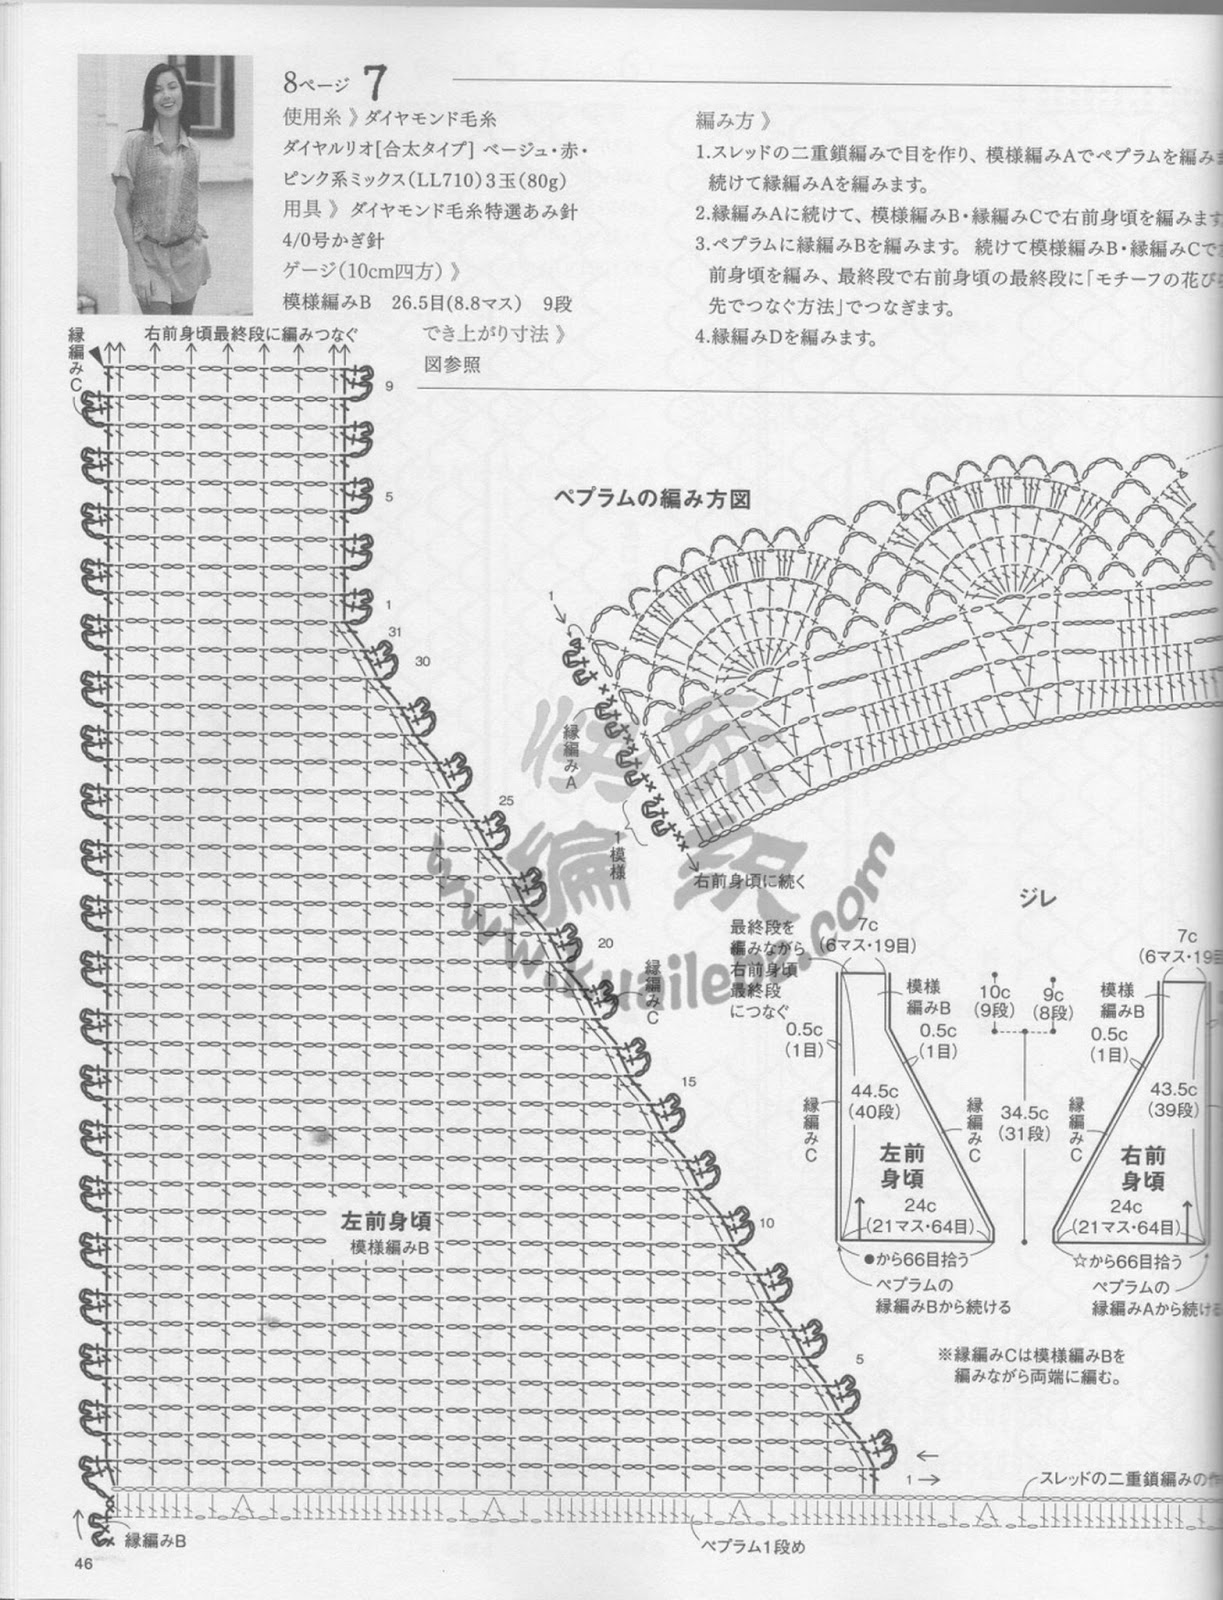 8ページ 7
使用糸 》 ダイヤモンド毛糸
ダイヤルリオ[合太タイプ] ベージュ・赤・
ピンク系ミックス(LL710)3玉(80g)
用具 》 ダイヤモンド毛糸特選あみ針
4/0号かぎ針
ゲージ(10cm四方) 》
模様編みB 26.5目(8.8マス) 9段
でき上がり寸法 》
図参照
編み方 》
1.スレッドの二重鎖編みで目を作り、模様編みAでペプラムを編み
続けて縁編みAを編みます。
2.縁編みAに続けて、模様編みB・縁編みCで右前身頃を編みます
3.ペプラムに縁編みBを編みます。続けて模様編みB・縁編みCで
前身頃を編み、最終段で右前身頃の最終段に「モチーフの花び
先でつなぐ方法」でつなぎます。
4.縁編みDを編みます。
右前身頃最終段に編みつなぐ
縁編みC
9
5
1
31
30
25
20
15
10
5
1
縁編みC
左前身頃
模様編みB
縁編みB
ペプラム1段め
スレッドの二重鎖編みの
ペプラムの編み方図
1
縁編みA
1模様
右前身頃に続く
快乐
编织
www.kuailebz.com
ジレ
最終段を
編みながら
右前身頃
最終段
につなぐ
7c
(6マス・19目)
模様
編みB
0.5c
(1目)
0.5c
(1目)
44.5c
(40段)
縁編みC
縁編みC
左前
身頃
24c
(21マス・64目)
●から66目拾う
ペプラムの
縁編みBから続ける
10c
(9段)
9c
(8段)
34.5c
(31段)
7c
(6マス・19目
模様
編みB
0.5c
(1目)
43.5c
(39段)
縁編みC
右前
身頃
24c
(21マス・64目)
☆から66目拾う
ペプラムの
縁編みAから続ける
※縁編みCは模様編みBを
編みながら両端に編む。
46